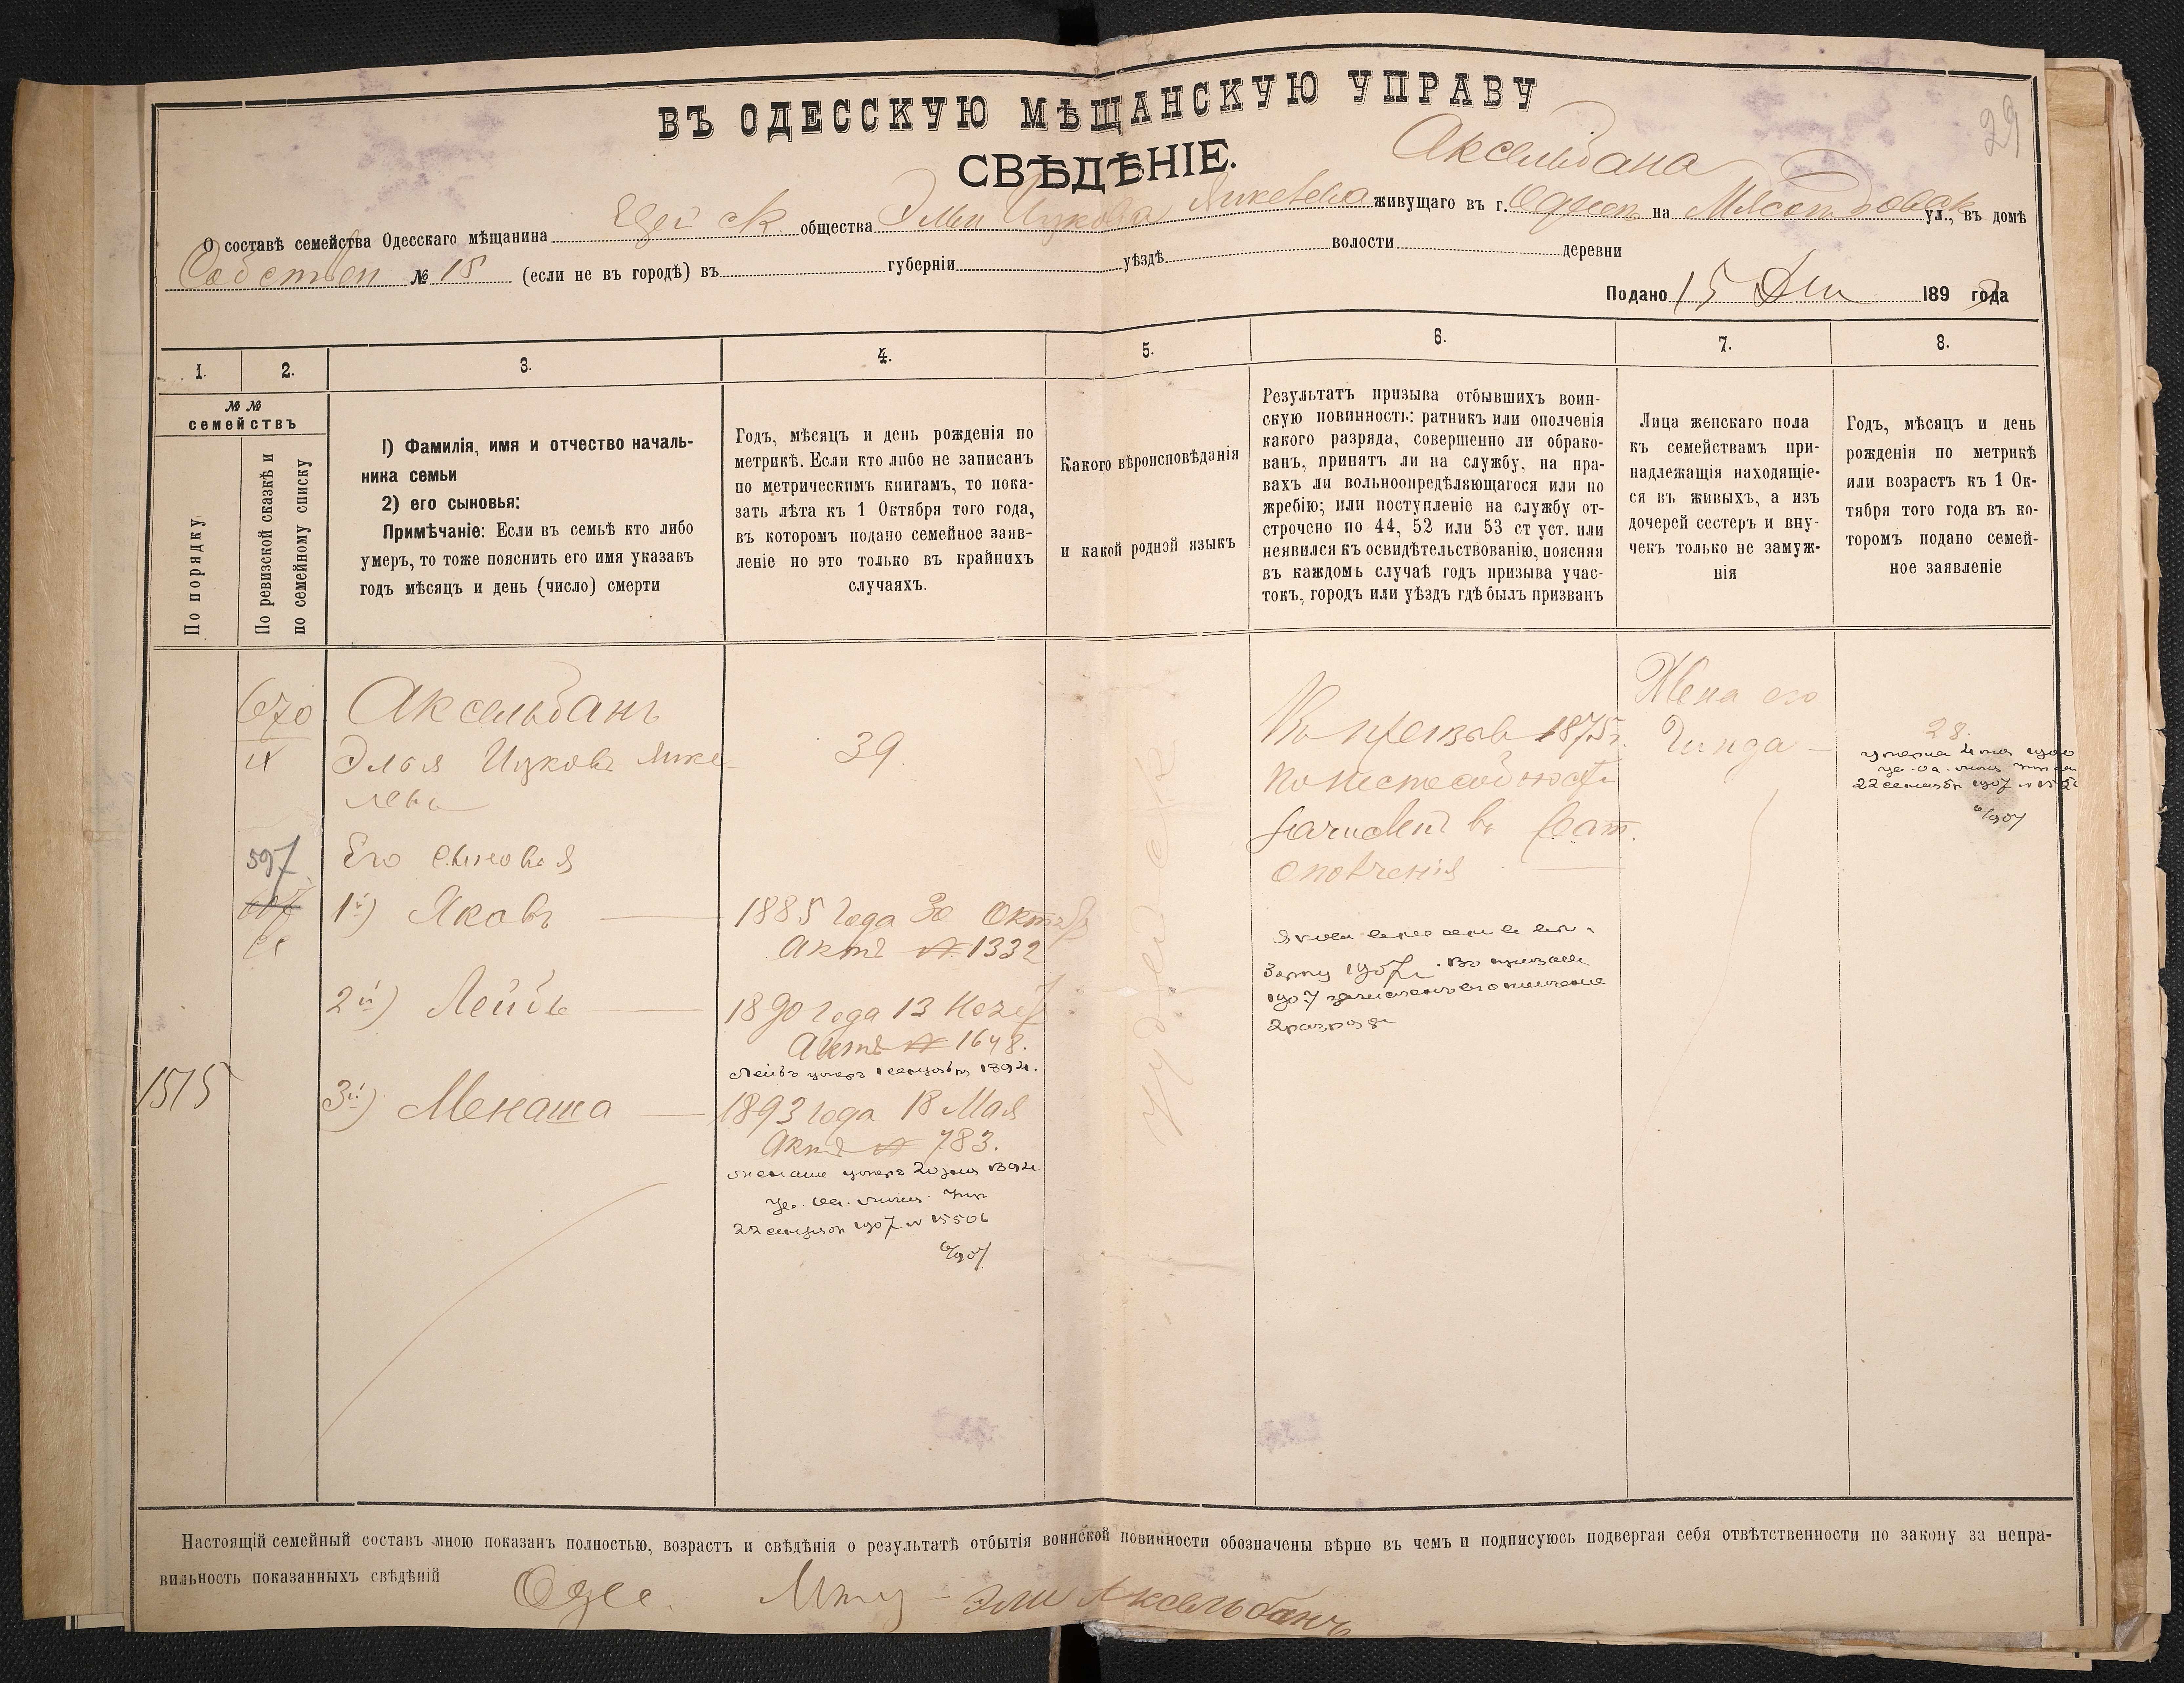 29
ВЪ ОДЕССКУЮ МѢЩАНСКУЮ УПРАВУ
СВѢДѢНІЕ.
Аксельбана
О составѣ семейства Одесскаго мѣщанина общества Ицкова живущаго въ г. на ул., въ домѣ
№ 15 (если не въ городѣ) въ губерніи уѣздѣ волости деревни
Подано 15 189 года
1. 2. 3. 4. 5. 6. 7. 8.
№№
семействъ
По порядку
По ревизской сказкѣ и
по семейному списку
1) Фамилія, имя и отчество началь-
ника семьи
2) его сыновья:
Примѣчаніе: Если въ семьѣ кто либо
умеръ, то тоже пояснить его имя указавъ
годъ мѣсяцъ и день (число) смерти
Годъ, мѣсяцъ и день рожденія по
метрикѣ. Если кто либо не записанъ
по метрическимъ книгамъ, то пока-
зать лѣта къ 1 Октября того года,
въ которомъ подано семейное заяв-
леніе но это только въ крайнихъ
случаяхъ.
Какого вѣроисповѣданія
и какой родной языкъ
Результатъ призыва отбывшихъ воин-
скую повинность: ратникъ или ополченія
какого разряда, совершенно ли обрако-
ванъ, принятъ ли на службу, на пра-
вахъ ли вольноопредѣляющагося или по
жребію; или поступленіе на службу от-
строчено по 44, 52 или 53 ст уст. или
неявился къ освидѣтельствованію, поясняя
въ каждомъ случаѣ годъ призыва учас-
токъ, городъ или уѣздъ гдѣ былъ призванъ
Лица женскаго пола
къ семействамъ при-
надлежащія находящіе-
ся въ живыхъ, а изъ
дочерей сестеръ и вну-
чекъ только не замуж-
нія
Годъ, мѣсяцъ и день
рожденія по метрикѣ
или возрастъ къ 1 Ок-
тября того года въ ко-
торомъ подано семей-
ное заявленіе
670
Аксельбанъ
Элья Ицковъ Янке-
левъ
39.
Въ призывъ 1875г.
по неспособности
зачисленъ въ Рат.
ополченія
Жена его
28.
22 сентября 1907
597
Его сыновья
1й) Яковъ
1885 года 30 Октяб
Актъ № 1332
2й) Лейбъ
1890 года 13 Нояб
Актъ № 1648.
Лейбъ умеръ 1 сентября 1894.
1515
3й) Менаша
1893 года 18 Мая
Актъ № 783.
22 сентября 1907 № 15506
6/907
1907 зачисленъ въ ополченіе
2 разряда
Іудейск
Настоящій семейный составъ мною показанъ полностью, возрастъ и свѣдѣнія о результатѣ отбытія воинской повинности обозначены вѣрно въ чемъ и подписуюсь подвергая себя отвѣтственности по закону за непра-
вильность показанныхъ свѣдѣній
Одес. Эли Аксельбанъ